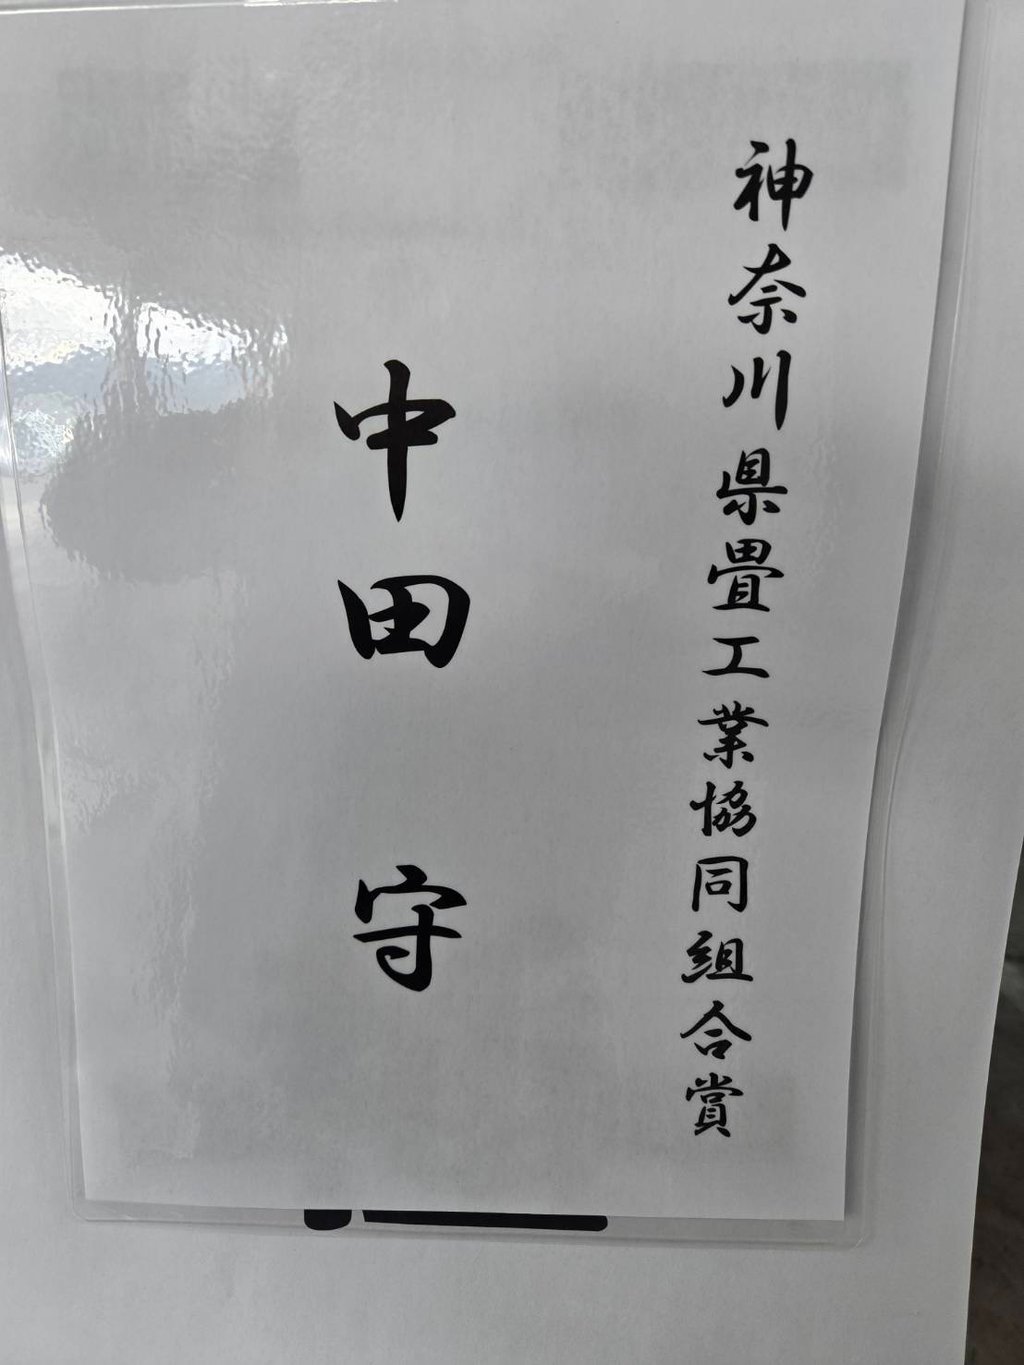 神奈川県畳工業協同組合賞
中田 守